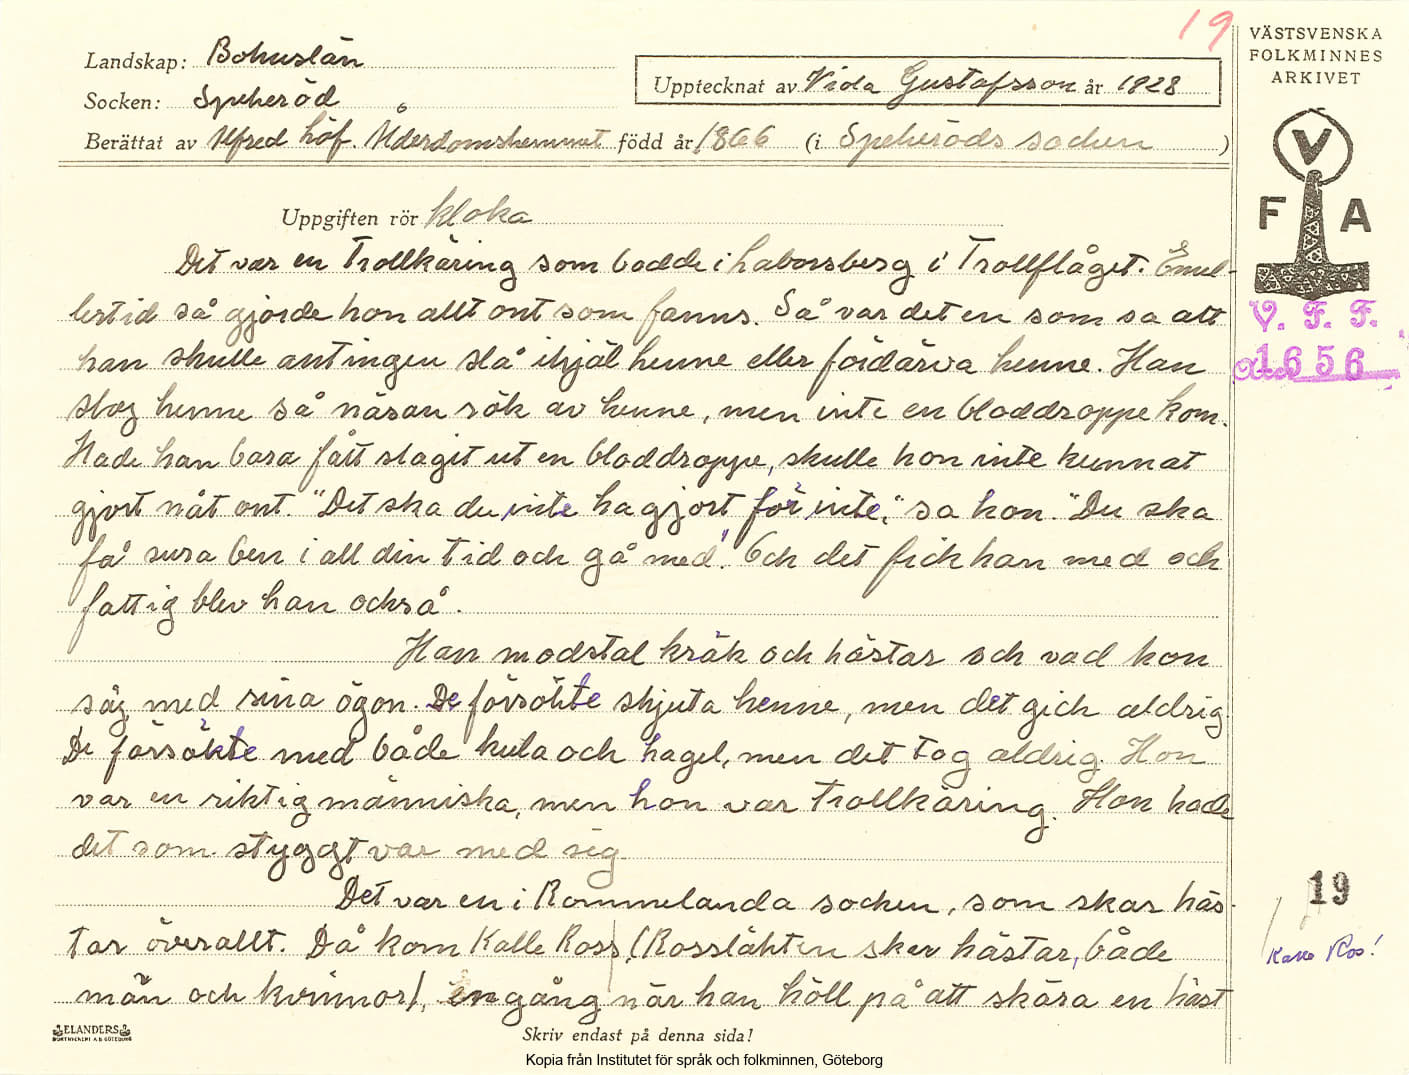 19
VÄSTSVENSKA
FOLKMINNES
ARKIVET
Landskap: Bohuslän
Upptecknat av Vida Gustafsson år 1928
Socken: Spekeröd
Berättat av Alfred Löf. Ålderdomshemmet född år 1866 (i Spekeröds socken )
V
F A
V. F. F.
1656
Uppgiften rör kloka
Det var en Trollkäring som bodde i Laborsberg i Trollflåget. Emel-
lertid så gjorde hon allt ont som fanns. Så var det en som sa att
han skulle antingen slå ihjäl henne eller fördärva henne. Han
slog henne så näsan rök av henne, men inte en bloddroppe kom.
Hade han bara fått slaget ut en bloddroppe, skulle hon inte kunnat
gjort nåt ont. "Det ska du inte ha gjort för inte," sa hon. "Du ska
få sura ben i all din tid och gå med". Och det fick han med och
fattig blev han också.
Han modstal kräk och hästar och vad hon
såg med sina ögon. De försökte skjuta henne, men det gick aldrig.
De försökte med både kula och hagel, men det tog aldrig. Hon
var en riktig människa, men hon var trollkäring. Hon hade
det som styggt var med sig.
Det var en i Rommelanda socken, som skar häs-
tar överallt. Då kom Kalle Ross (Rossläkten sker hästar, både
män och kvinnor), en gång när han höll på att skära en häst
19
Kalle Ros!
ELANDERS
BOKTRYCKERI A.B. GÖTEBORG
Skriv endast på denna sida!
Kopia från Institutet för språk och folkminnen, Göteborg